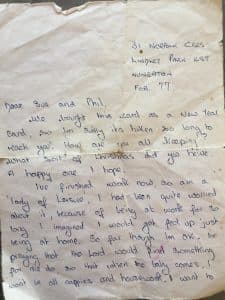 31 Norfolk Cres
Lindley Park Est
Nuneaton
Feb. 77
Dear Sue and Phil,
We bought this card as a New Year
Card, so I'm sorry its taken so long to
reach you. How are you all keeping?
What sort of Christmas did you have
A happy one I hope.
I've finished work now, so am a
lady of leisure. I had been quite worried
about it, because of being at work for so
long I imagined I would get fed up just
being at home. So far though I'm ok. I'm
praying that the Lord would find something
for me to do so that when the baby comes, I
won't be all nappies and housework. I want to